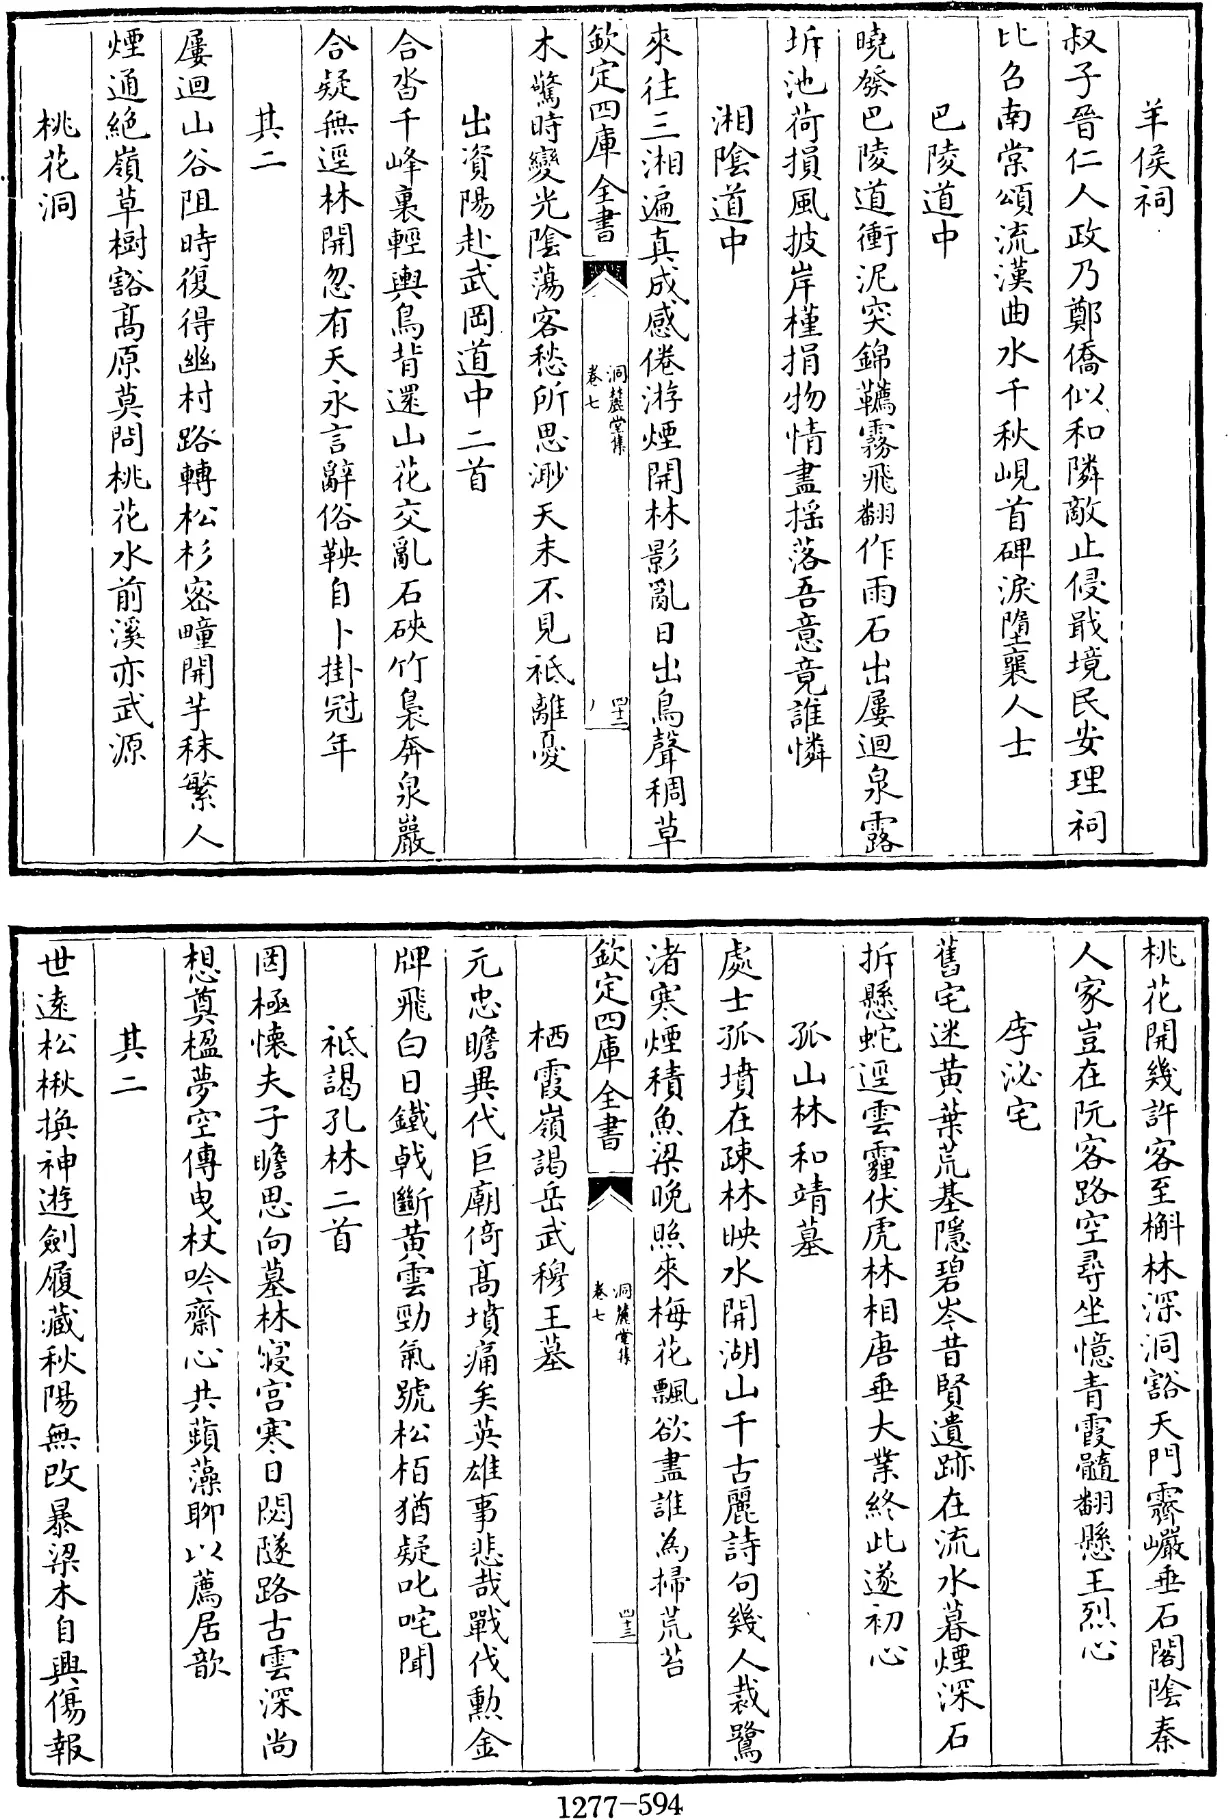 羊侯祠
叔子晉仁人政乃鄭僑似和隣敵止侵戢境民安理祠
比召南棠頌流漢曲水千秋峴首碑淚墮襄人士
巴陵道中
曉發巴陵道衝泥突錦韉霧飛翻作雨石出屢迴泉露
坼池荷損風披岸槿捐物情盡揺落吾意竟誰憐
湘陰道中
來往三湘遍真成感倦游煙開林影亂日出鳥聲稠草
欽定四庫全書
洞麓堂集
卷七
四十二
木驚時變光陰蕩客愁所思渺天末不見祗離憂
出資陽赴武岡道中二首
合沓千峰裏輕輿鳥背還山花交亂石硤竹裊奔泉巖
合疑無逕林開忽有天永言辭俗鞅自卜掛冠年
其二
屢迴山谷阻時復得幽村路轉松杉宻疃開芋秣繁人
煙通絶嶺草樹豁髙原莫問桃花水前溪亦武源
桃花洞
桃花開幾許客至槲林深洞豁天門霽巘垂石閣陰秦
人家豈在阮客路空尋坐憶青霞髓翻懸王烈心
李泌宅
舊宅迷黄葉荒基隱碧岑昔賢遺跡在流水暮煙深石
拆懸蛇逕雲霾伏虎林相唐垂大業終此遂初心
孤山林和靖墓
處士孤墳在疎林映水開湖山千古麗詩句幾人裁鷺
渚寒煙積魚梁晚照來梅花飄欲盡誰為掃荒苔
欽定四庫全書
洞麓堂集
卷七
四十三
栖霞嶺謁岳武穆王墓
元忠瞻異代巨廟倚髙墳痛矣英雄事悲哉戰伐勲金
牌飛白日鐵戟斷黄雲勁氣號松栢猶疑叱咤聞
祗謁孔林二首
罔極懷夫子瞻思向墓林寢宫寒日閟隧路古雲深尚
想奠楹夢空傳曳杖吟齋心共蘋藻聊以薦居歆
其二
世逺松楸換神遊劍履藏秋陽無改暴梁木自興傷報
1277-594